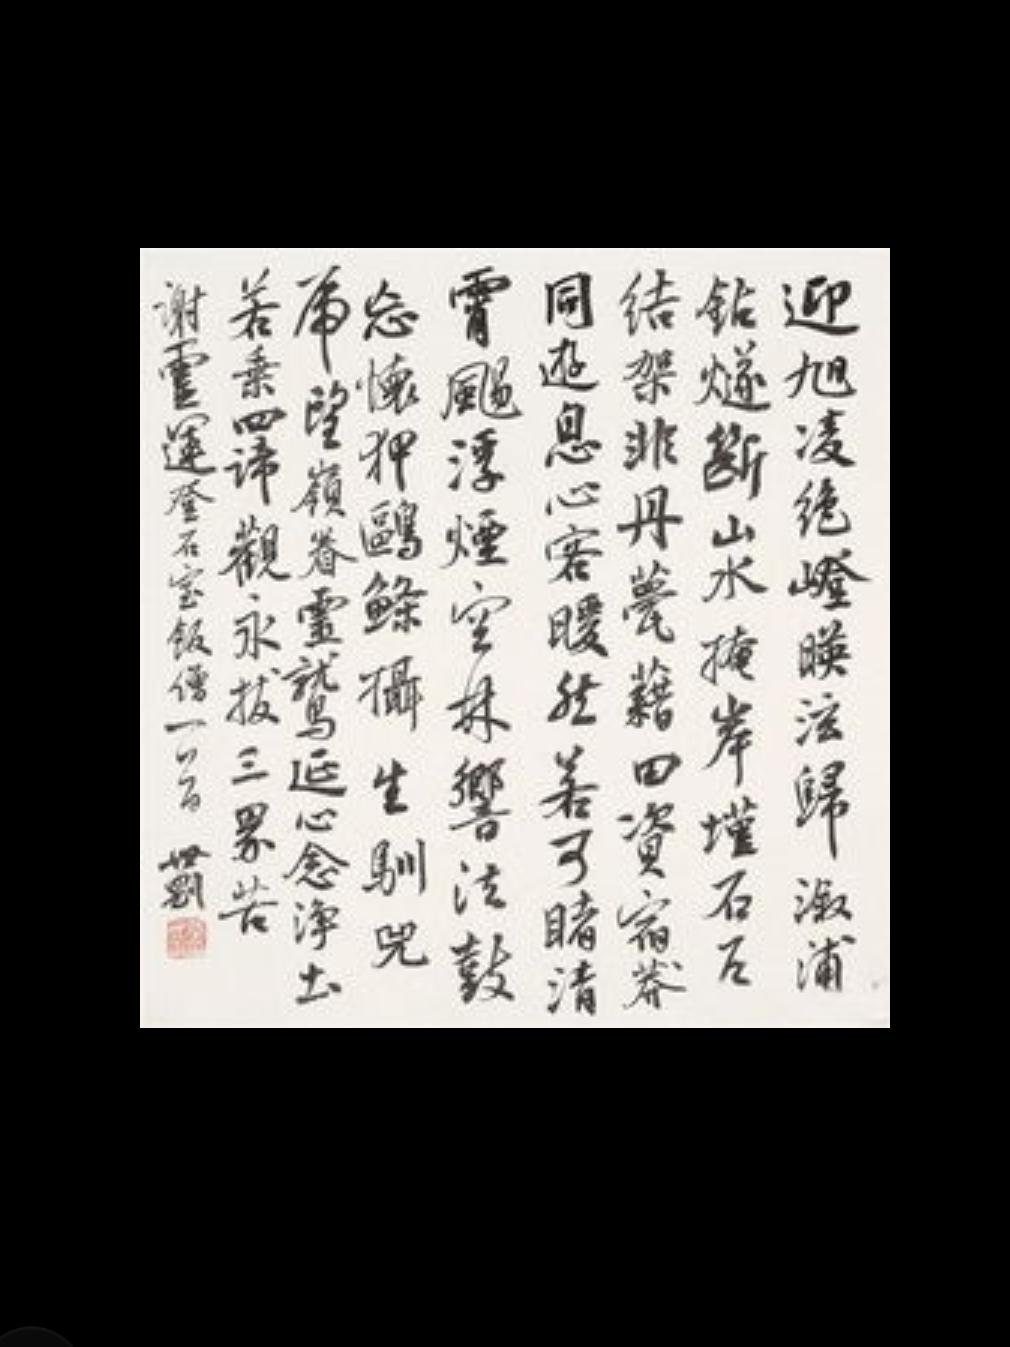 迎旭凌絕嶝暎泫歸漵浦
鉆燧斷山木掩岸墐石戶
結架非丹甍藉田資宿莽
同遊息心客曖然若可睹清
霄颺浮煙空林響法鼓
忘懷狎鷗鰷攝生馴兕
虎望嶺眷靈鷲延心念淨土
若乘四諦觀永拔三界苦
謝靈運登石室飯僧一首 世剛